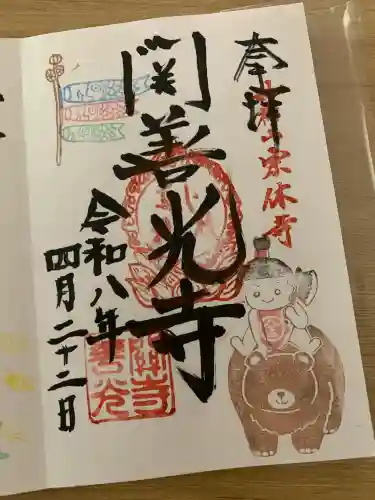 奉拝
宗休寺
関善光寺
令和八年
四月二十二日
関善光寺